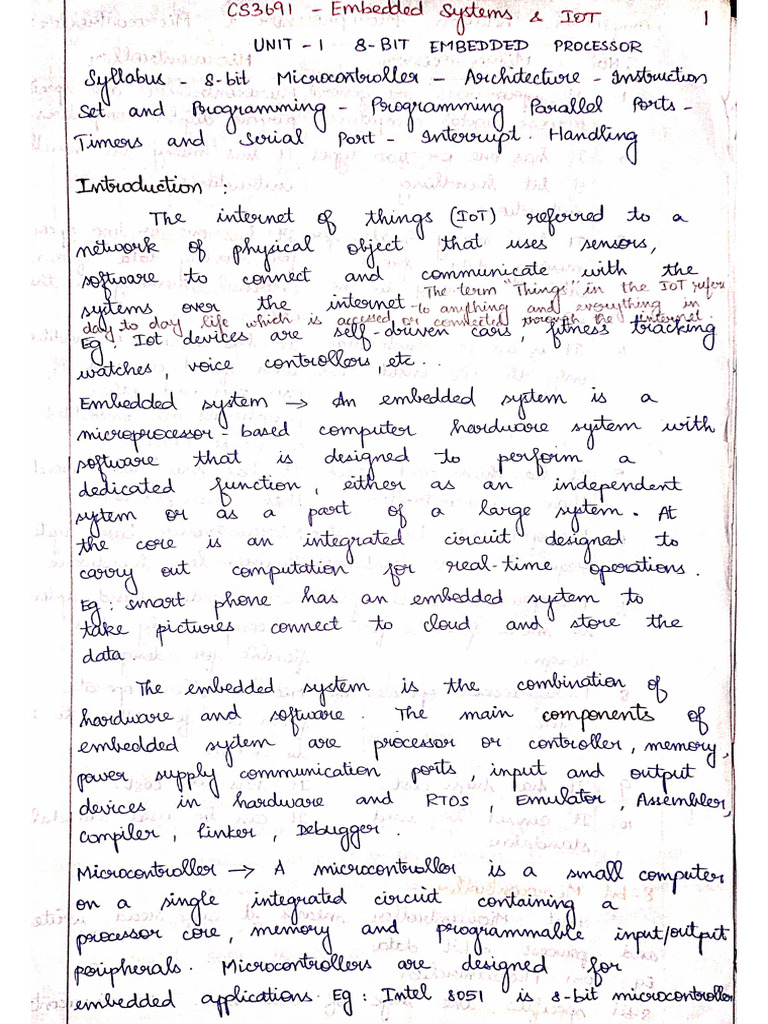 CS3691 - Embedded Systems & IOT 1
UNIT - 1 8-BIT EMBEDDED PROCESSOR
Syllabus - 8-bit Microcontroller - Architecture - Instruction
Set and Programming - Programming Parallel Ports -
Timers and Serial Port - Interrupt Handling
Introduction :
The internet of things (IoT) referred to a
network of physical object that uses sensors,
software to connect and communicate with the
systems over the internet. The term "Things" in the IOT refers
to anything and everything in
day to day life which is accessed or connected through the internet.
Eg : Iot devices are self-driven cars, fitness tracking
watches, voice controllers, etc...
Embedded system → An embedded system is a
microprocessor - based computer hardware system with
software that is designed to perform a
dedicated function, either as an independent
sytem or as a part of a large system. At
the core is an integrated circuit designed to
carry out computation for real-time operations.
Eg : smart phone has an embedded system to
take pictures connect to cloud and store the
data.
The embedded system is the combination of
hardware and software. The main components of
embedded system are processor or controller, memory,
power supply communication ports, input and output
devices in hardware and RTOS, Emulator, Assembler,
Compiler, Linker, Debugger.
Microcontroller → A microcontroller is a small computer
on a single integrated circuit containing a
processor core, memory and programmable input/output
peripherals. Microcontrollers are designed for
embedded applications. Eg : Intel 8051 is 8-bit microcontroller